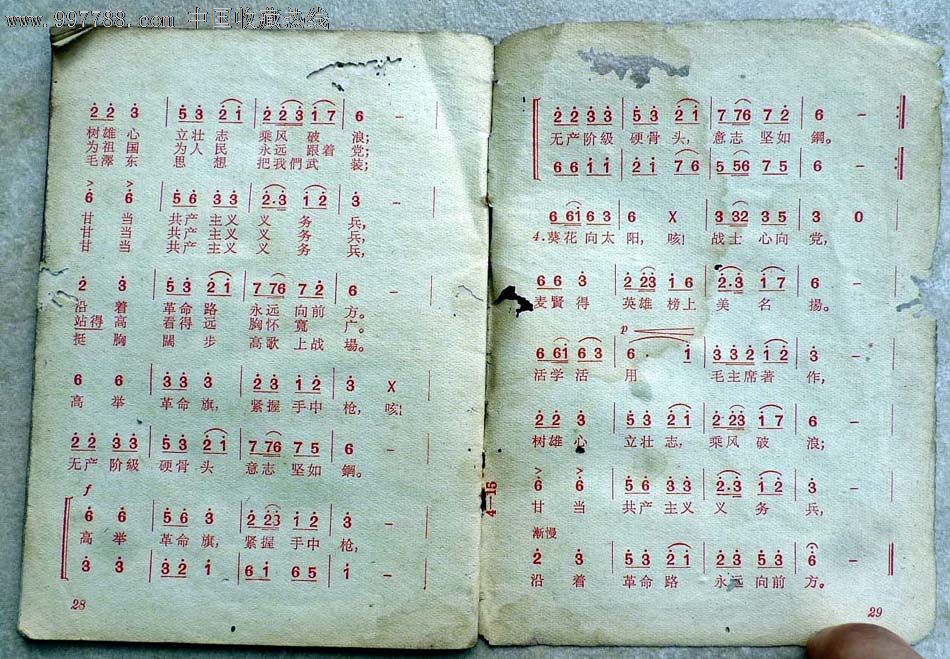 www.997788.com 中国收藏热线
2 2 3 | 5 3 2 1 | 2 2 3 1 7 | 6 - |
树雄心 立壮志 乘风破浪;
为祖国 为人民 永远跟着党;
毛澤东 思想 把我們武装;
6 6 | 5 6 3 3 | 2·3 1 2 | 3 - |
甘当 共产主义 义务兵,
甘当 共产主义 义务兵,
甘当 共产主义 义务兵,
2 3 | 5 3 2 1 | 7 76 7 2 | 6 - |
沿着 革命路 永远向前方。
站得高 看得远 胸怀寬广。
挺胸 闊步 高歌上战場。
6 6 | 3 3 3 | 2 3 1 2 | 3 X |
高举 革命旗, 紧握手中枪, 咳!
2 2 3 3 | 5 3 2 1 | 7 76 7 5 | 6 - |
无产阶級 硬骨头 意志坚如鋼。
f
6 6 | 5 6 3 | 2 23 1 2 | 3 - |
高举 革命旗, 紧握手中枪,
3 3 | 3 2 1 | 6 1 6 5 | 1 - |
28
2 2 3 3 | 5 3 2 1 | 7 76 7 2 | 6 - :|
无产阶級 硬骨头, 意志坚如鋼。
6 6 1 1 | 2 1 7 6 | 5 56 7 5 | 6 - :|
6 61 6 3 | 6 X | 3 32 3 5 | 3 0 |
4.葵花向太阳, 咳! 战士心向党,
6 6 3 | 2 23 1 6 | 2·3 1 7 | 6 - |
麦賢得 英雄榜上 美名揚。
p
6 61 6 3 | 6· 1 | 3 3 2 1 2 | 3 - |
活学活用 毛主席著作,
2 2 3 | 5 3 2 1 | 2 23 1 7 | 6 - |
树雄心 立壮志, 乘风破浪;
6 6 | 5 6 3 3 | 2·3 1 2 | 3 - |
甘当 共产主义 义务兵,
漸慢
2 3 | 5 3 2 1 | 2 3 5 3 | 6 - |
沿着 革命路 永远向前方。
29
4—15